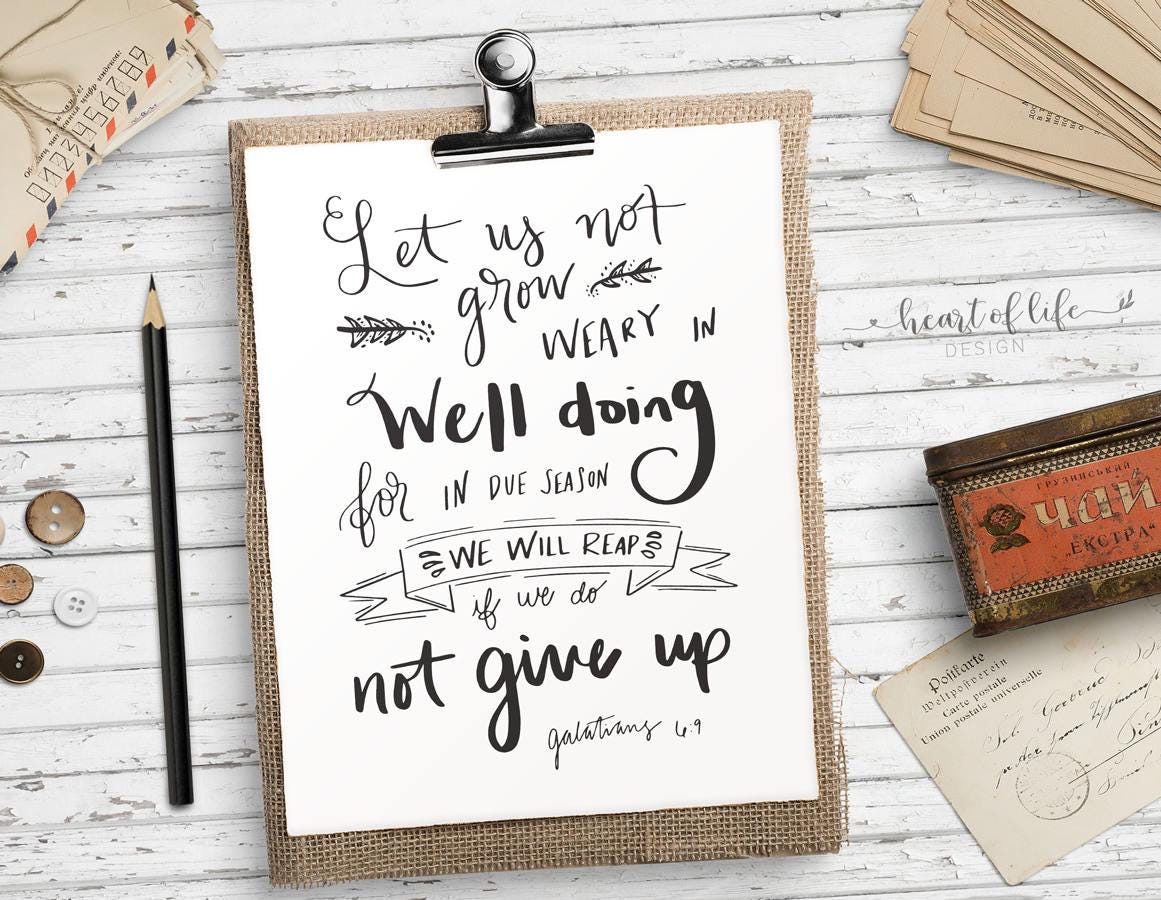 Let us not
grow
WEARY IN
Well doing
for IN DUE SEASON
WE WILL REAP
if we do
not give up
galatians 6:9
heart of life
DESIGN
0123456789
ГРУЗИНСЬКИЙ
ЧАЙ
„ЕКСТРА“
Postkarte
Weltpostverein
Carte postale
Union postale universelle